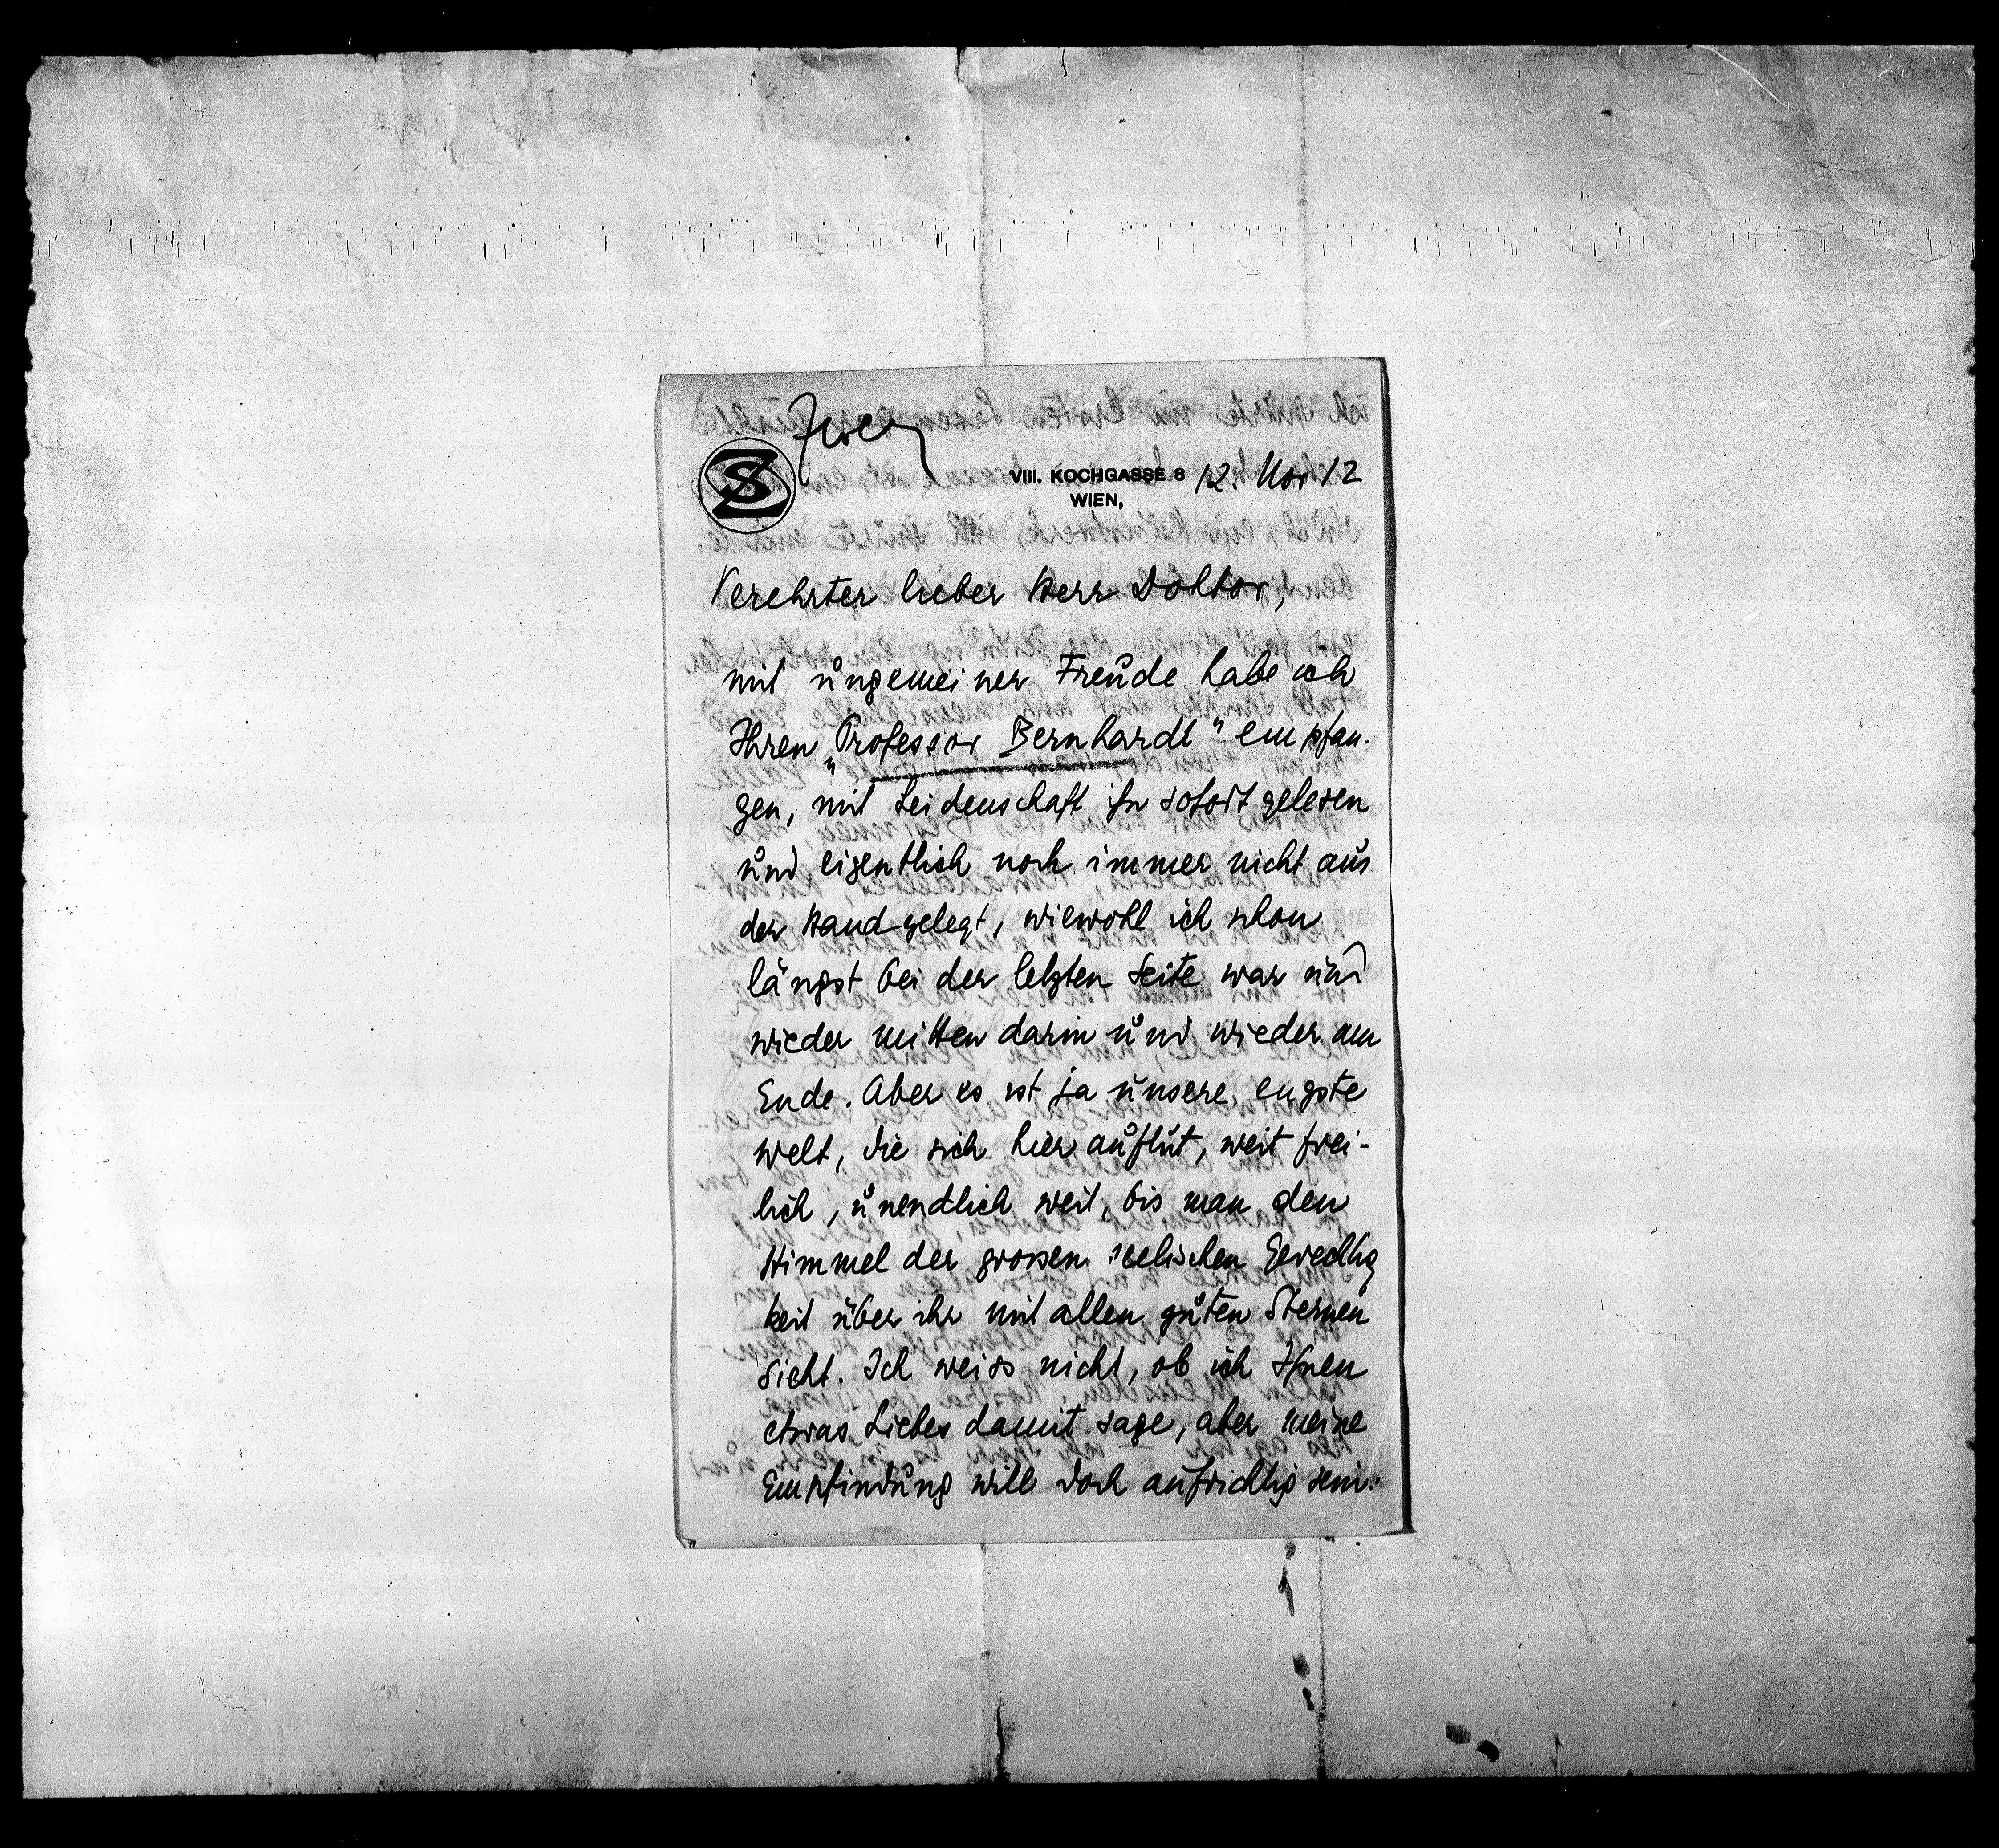 Zweig
SZ
VIII. KOCHGASSE 8 12. Nov 12
WIEN,
Verehrter lieber Herr Doktor,
mit ungemeiner Freude habe ich
Ihren „Professor Bernhardi" empfan-
gen, mit Leidenschaft ihn sofort gelesen
und eigentlich noch immer nicht aus
der Hand gelegt, wiewohl ich schon
längst bei der letzten Seite war und
wieder mitten darin und wieder am
Ende. Aber es ist ja unsere engste
Welt, die sich hier auftut, weit frei-
lich, unendlich weit, bis man den
Himmel der grossen seelischen Gerechtig
keit über ihr mit allen guten Sternen
sieht. Ich weiss nicht, ob ich Ihnen
etwas Liebes damit sage, aber meine
Empfindung will doch aufrichtig sein: